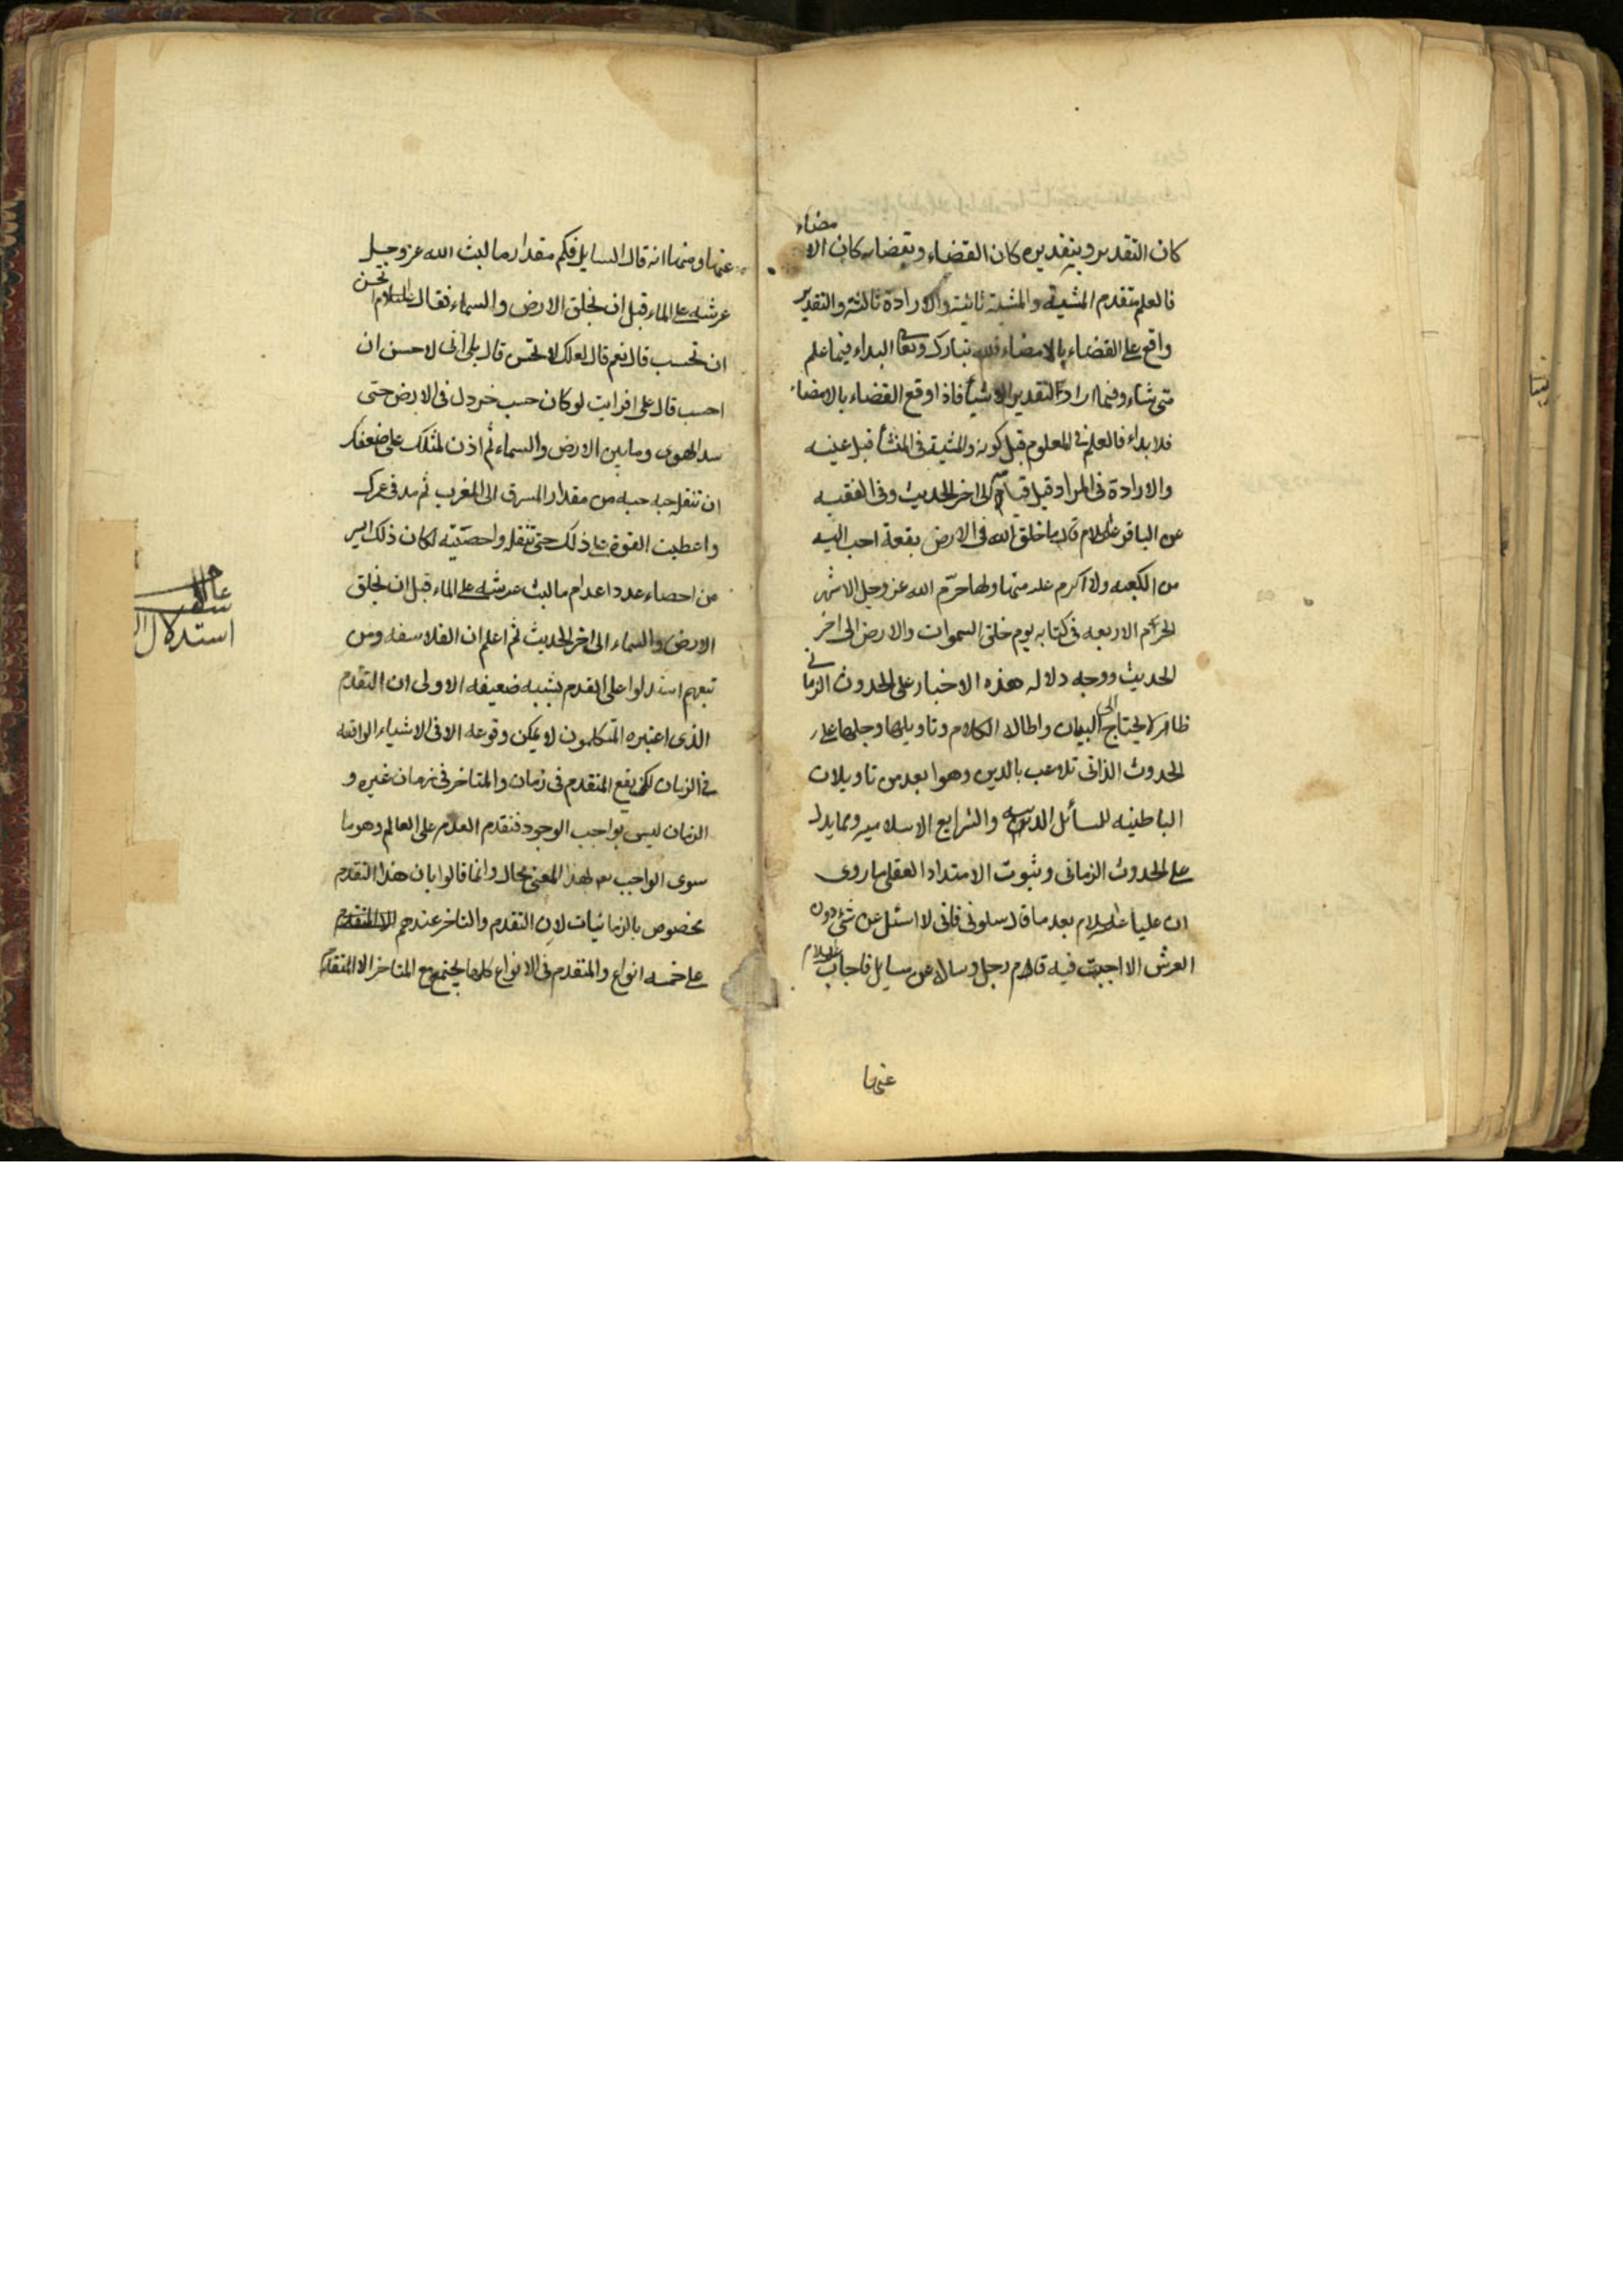 كان التقدير وبتقديره كان القضاء وبقضائه كان الا
مضاء
فالعلم متقدم المشية والمشية ثانية والارادة ثالثة والتقدير
واقع على القضاء بالامضاء فلله تبارك وتعالى البداء فيما علم
متى شاء وفيما اراد التقدير الاشياء فاذا وقع القضاء بالامضاء
فلا بداء فالعلم في المعلوم قبل كونه والمشية في المنشأ قبل عينه
والارادة في المراد قبل قيامه الى اخر الحديث وفي الفقيه
عن الباقر عليه السلام قال ما خلق الله في الارض بقعة احب اليه
من الكعبه ولا اكرم عليه منها ولها حرّم الله عز وجل الاشهر
الحرم الاربعه في كتابه يوم خلق السموات والارض الى اخر
الحديث ووجه دلاله هذه الاخبار على الحدوث الزماني
ظاهر لا يحتاج الى البيان واطالة الكلام وتاويلها وحملها على
الحدوث الذاتى تلاعب بالدين وهو ابعد من تاويلات
الباطنيه للمسائل الدينيه والشرايع الاسلاميه ومما يدل
على الحدوث الزمانى وثبوت الامتداد العقلى ما روى
ان عليا عليه السلام بعد ما قال سلونى فانى لا اسئل عن شئ دون
العرش الا اجبت فيه قام رجل وساله عن سايل فاجاب عليه السلام
عنها
عنها ومنها انه قال السايل فكم مقدار ما لبث الله عز وجل
عرشه على الماء قبل ان يخلق الارض والسماء فقال عليه السلام اتحسن
ان تحسب قال نعم قال لعلك لا تحسن قال بلى انى لاحسن ان
احسب قال على افرايت لو كان حسب خردل في الارض حتى
سد الهوى وما بين الارض والسماء ثم اذن لمثلك على ضعفك
ان تنقله حبه حبه من مقدار المشرق الى المغرب ثم مد في عمرك
واعطيت القوة على ذلك حتى تنقله واحصيته لكان ذلك ايسر
من احصاء عدد اعوام ما لبث عرشه على الماء قبل ان يخلق
الارض والسماء الى اخر الحديث ثم اعلم ان الفلاسفه ومن
تبعهم استدلوا على القدم بشبه ضعيفه الاولى ان التقدم
الذى اعتبره المتكلمون لا يمكن وقوعه الا في الاشياء الواقعه
في الزمان لكى يقع المتقدم في زمان والمتاخر في زمان غيره و
الزمان ليس بواجب الوجود فتقدم العدم على العالم وهو ما
سوى الواجب بهذا المعنى محال وانما قالوا بان هذا التقدم
مخصوص بالزمانيات لان التقدم والتاخر عندهم
على خمسه انواع والمتقدم في الانواع كلها يجتمع مع المتاخر الا المتقدم
استدلال